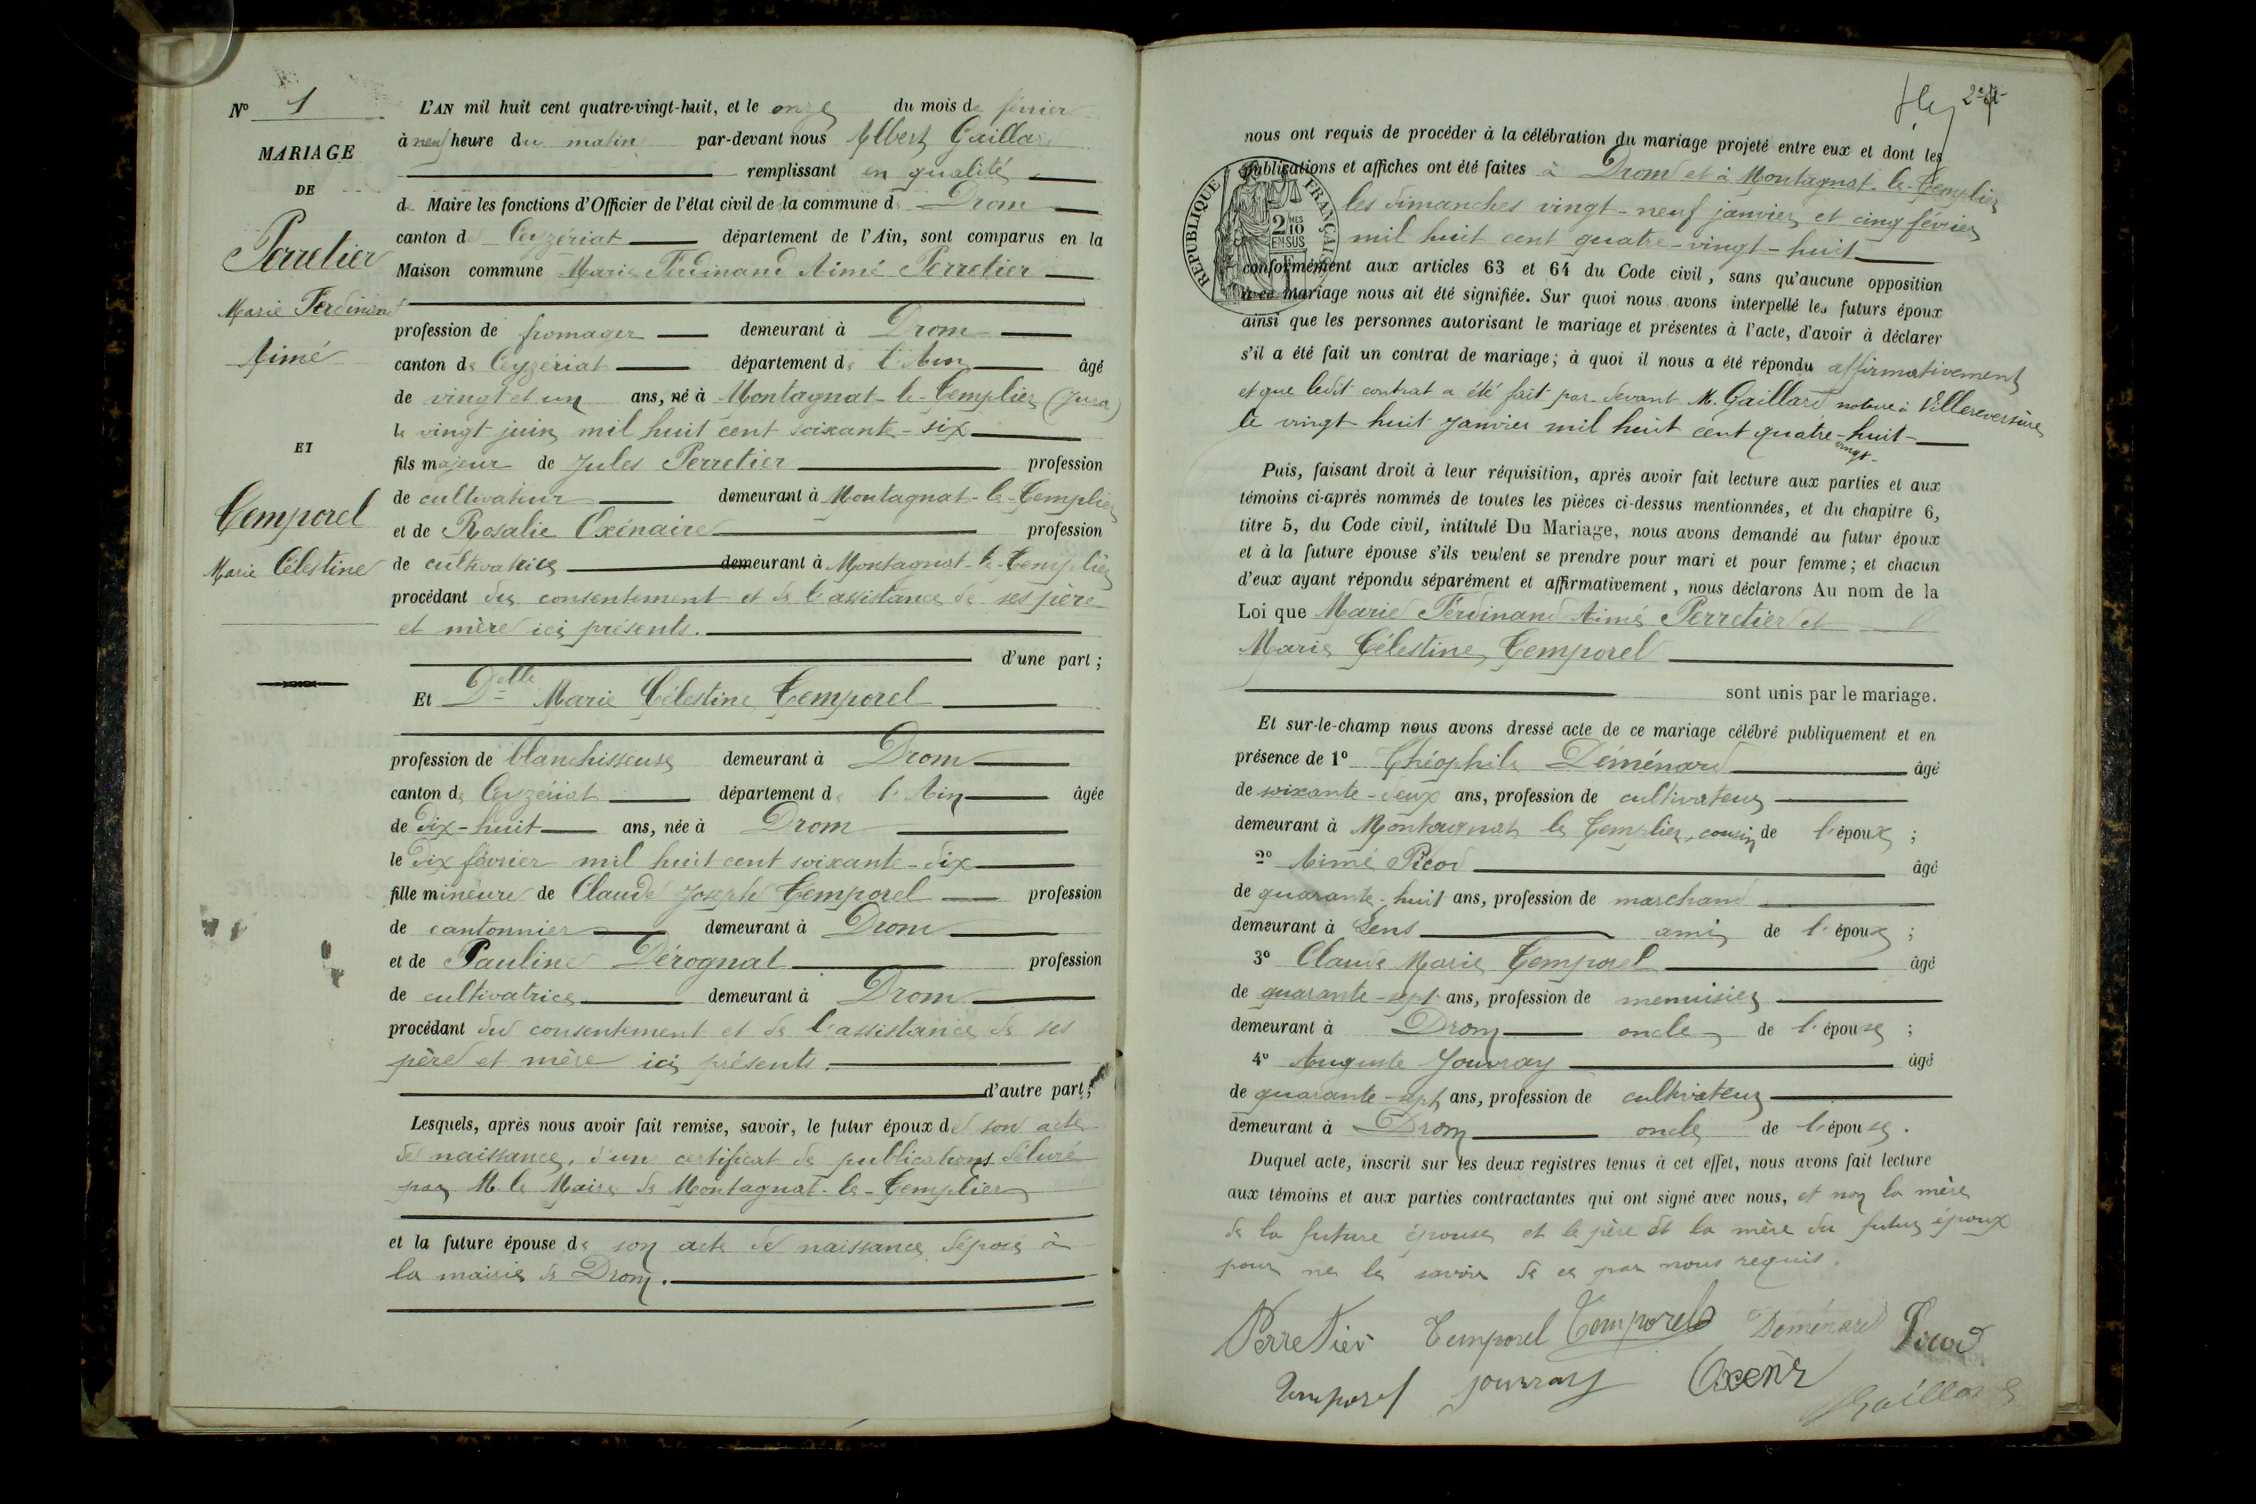 N° 1
MARIAGE
DE
Perretier
Marie Ferdinand
Aimé
ET
Temporel
Marie Célestine
L'AN mil huit cent quatre-vingt-huit, et le onze du mois de février
à neuf heure du matin par-devant nous Albert Gaillard
remplissant en qualité
de Maire les fonctions d'Officier de l'état civil de la commune de Drom
canton de Ceyzériat département de l'Ain, sont comparus en la
Maison commune Marie Ferdinand Aimé Perretier
profession de fromager demeurant à Drom
canton de Ceyzériat département de l'Ain âgé
de vingt et un ans, né à Montagnat-le-Templier (Jura)
le vingt juin mil huit cent soixante-six
fils majeur de Jules Perretier profession
de cultivateur demeurant à Montagnat-le-Templier
et de Rosalie Oxénaire profession
de cultivatrice demeurant à Montagnat-le-Templier
procédant du consentement et de l'assistance de ses père
et mère ici présents.
d'une part ;
Et Delle Marie Célestine Temporel
profession de blanchisseuse demeurant à Drom
canton de Ceyzériat département de l'Ain âgée
de dix-huit ans, née à Drom
le dix février mil huit cent soixante-dix
fille mineure de Claude Joseph Temporel profession
de cantonnier demeurant à Drom
et de Pauline Dérognat profession
de cultivatrice demeurant à Drom
procédant du consentement et de l'assistance de ses
père et mère ici présents.
d'autre part ;
Lesquels, après nous avoir fait remise, savoir, le futur époux de son acte
de naissance, d'un certificat de publications délivré
par M. le Maire de Montagnat-le-Templier
et la future épouse de son acte de naissance déposé à
la mairie de Drom.
2e
nous ont requis de procéder à la célébration du mariage projeté entre eux et dont les
publications et affiches ont été faites à Drom et à Montagnat-le-Templier
les dimanches vingt-neuf janvier et cinq février
mil huit cent quatre-vingt-huit
RÉPUBLIQUE FRANÇAISE
2 MES 10 EN SUS
conformément aux articles 63 et 64 du Code civil, sans qu'aucune opposition
à ce mariage nous ait été signifiée. Sur quoi nous avons interpellé les futurs époux
ainsi que les personnes autorisant le mariage et présentes à l'acte, d'avoir à déclarer
s'il a été fait un contrat de mariage ; à quoi il nous a été répondu affirmativement
et que ledit contrat a été fait par-devant M. Gaillard notaire à Villereversure
le vingt huit janvier mil huit cent quatre-vingt-huit
Puis, faisant droit à leur réquisition, après avoir fait lecture aux parties et aux
témoins ci-après nommés de toutes les pièces ci-dessus mentionnées, et du chapitre 6,
titre 5, du Code civil, intitulé Du Mariage, nous avons demandé au futur époux
et à la future épouse s'ils veulent se prendre pour mari et pour femme ; et chacun
d'eux ayant répondu séparément et affirmativement, nous déclarons Au nom de la
Loi que Marie Ferdinand Aimé Perretier et
Marie Célestine Temporel
sont unis par le mariage.
Et sur-le-champ nous avons dressé acte de ce mariage célébré publiquement et en
présence de 1° Théophile Déménard âgé
de soixante-deux ans, profession de cultivateur
demeurant à Montagnat le Templier, cousin de l'époux ;
2° Aimé Picod âgé
de quarante-huit ans, profession de marchand
demeurant à Lens ami de l'époux ;
3° Claude Marie Temporel âgé
de quarante-sept ans, profession de menuisier
demeurant à Drom oncle de l'épouse ;
4° Auguste Jouvray âgé
de quarante-sept ans, profession de cultivateur
demeurant à Drom oncle de l'épouse.
Duquel acte, inscrit sur les deux registres tenus à cet effet, nous avons fait lecture
aux témoins et aux parties contractantes qui ont signé avec nous, et non la mère
de la future épouse et le père et la mère du futur époux
pour ne le savoir de ce par nous requis.
Perretier Temporel Temporel Déménard Picod
Temporel Jouvray Gaillard